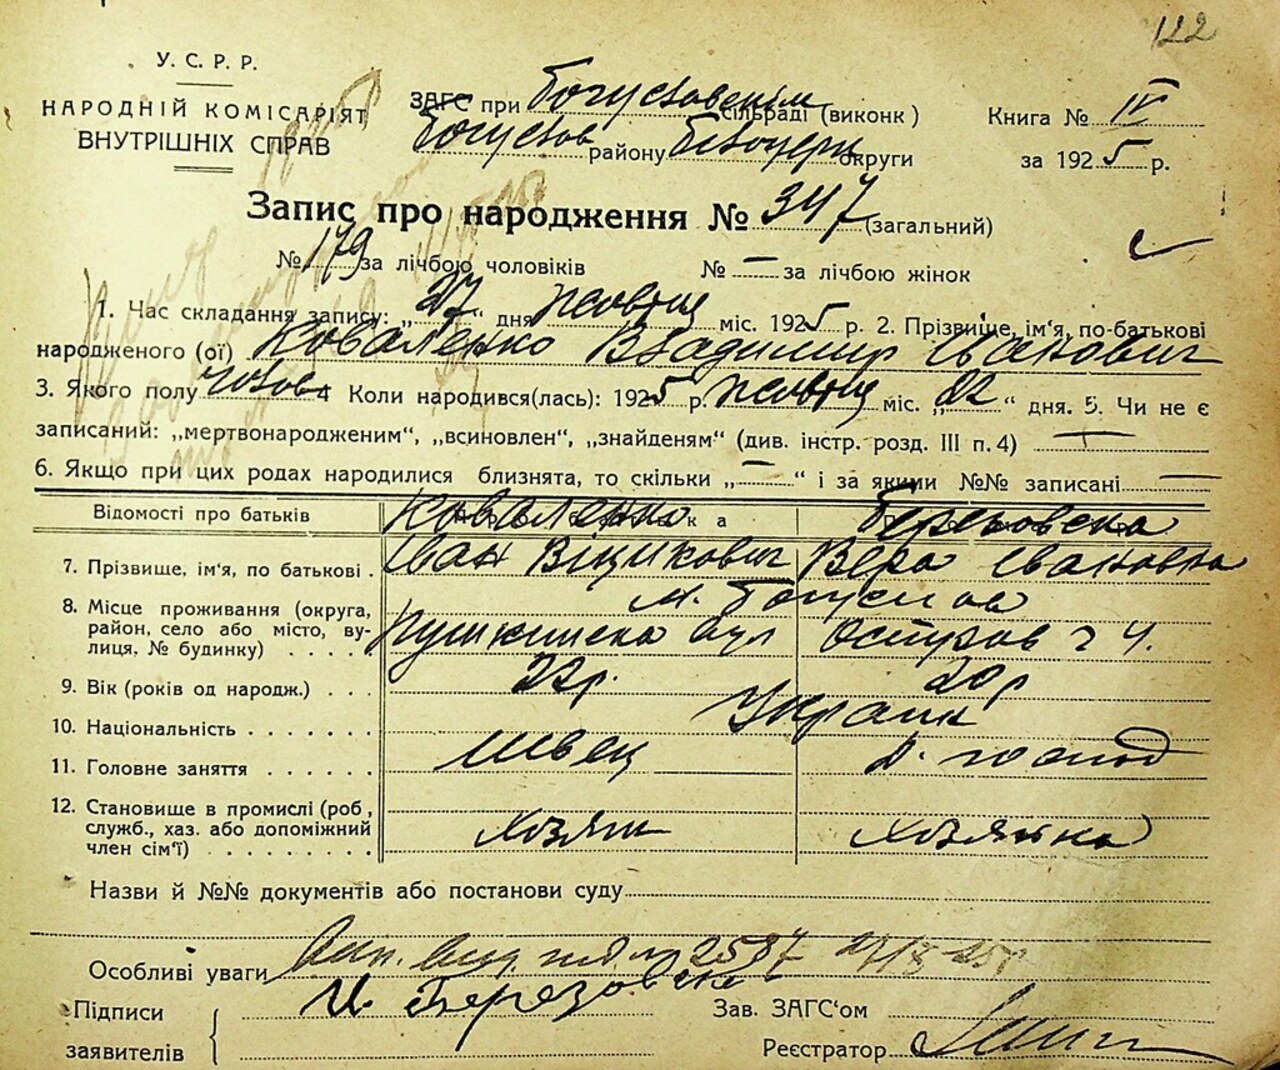 122
У. С. Р. Р.
НАРОДНІЙ КОМІСАРІЯТ
ВНУТРІШНІХ СПРАВ
ЗАГС при Богуславськім сільраді (виконк)
Богуслав району Білоцерк округи
Книга № IV
за 1925 р.
Запис про народження № 347 (загальний)
№ 179 за лічбою чоловіків № — за лічбою жінок
1. Час складання запису: „27“ дня жовтня міс. 1925 р. 2. Прізвище, ім'я, по-батькові
народженого (ої) Коваленко Владимир Іванович
3. Якого полу чолов 4 Коли народився(лась): 1925 р. жовтня міс. „22“ дня. 5. Чи не є
записаний: „мертвонародженим“, „всиновлен“, „знайденям“ (див. інстр. розд. III п. 4) —
6. Якщо при цих родах народилися близнята, то скільки „—“ і за якими №№ записані —
Відомості про батьків Коваленко
7. Прізвище, ім'я, по батькові. Іван Вера Ивановна
8. Місце проживання (округа, м. Богуслав
район, село або місто, ву- Пушкинська вул Остров ч 4.
лиця, № будинку)
9. Вік (років од народж.) 22р. 20р
10. Національність Украин
11. Головне заняття швец д. господ
12. Становище в промислі (роб,
служб., хаз. або допоміжний хозяин хозяйка
член сім'ї)
Назви й №№ документів або постанови суду
Особливі уваги вид. № 2587
Підписи И. Березовська Зав. ЗАГС'ом
заявителів Реєстратор